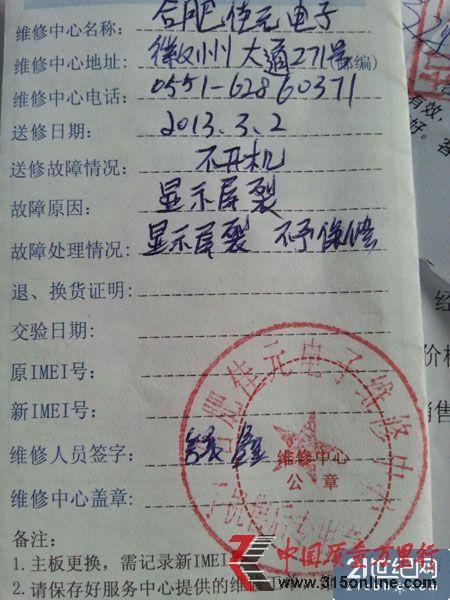 维修中心名称：合肥佳元电子
维修中心地址：徽州大道271号 邮编）
维修中心电话：0551-62860371
送修日期：2013.3.2
送修故障情况：不开机
故障原因：显示屏裂
故障处理情况：显示屏裂 不予保修
退、换货证明：
交验日期：
原IMEI号：
新IMEI号：
维修人员签字：
维修中心盖章：
维修中心
公 章
合肥佳元电子维修中心
备注：
1.主板更换，需记录新IMEI
2.请保存好服务中心提供的维
中国质量万里行
www.315online.com
21世纪网
有效，
好。客
经
价格
销售